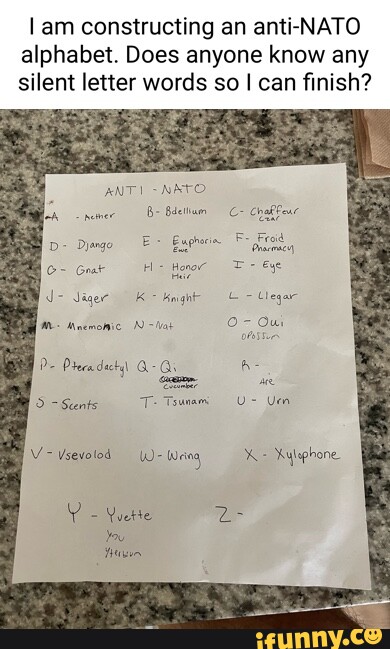 I am constructing an anti-NATO
alphabet. Does anyone know any
silent letter words so I can finish?
ANTI - NATO
A - Aether B- Bdellium C- Chaffeur
Czar
D - Django E - Euphoria F- Froid
Ewe Pharmacy
G - Gnat H - Honor I - Eye
Heir
J - Jäger K - Knight L - Llegar
M- Mnemonic N - Nat O - Oui
Opossum
P- Pteradactyl Q - Qi R -
Cucumber Are
S - Scents T- Tsunami U - Urn
V - Vsevolod W - Wring X - Xylophone
Y - Yvette Z -
You
Yterbium
ifunny.co